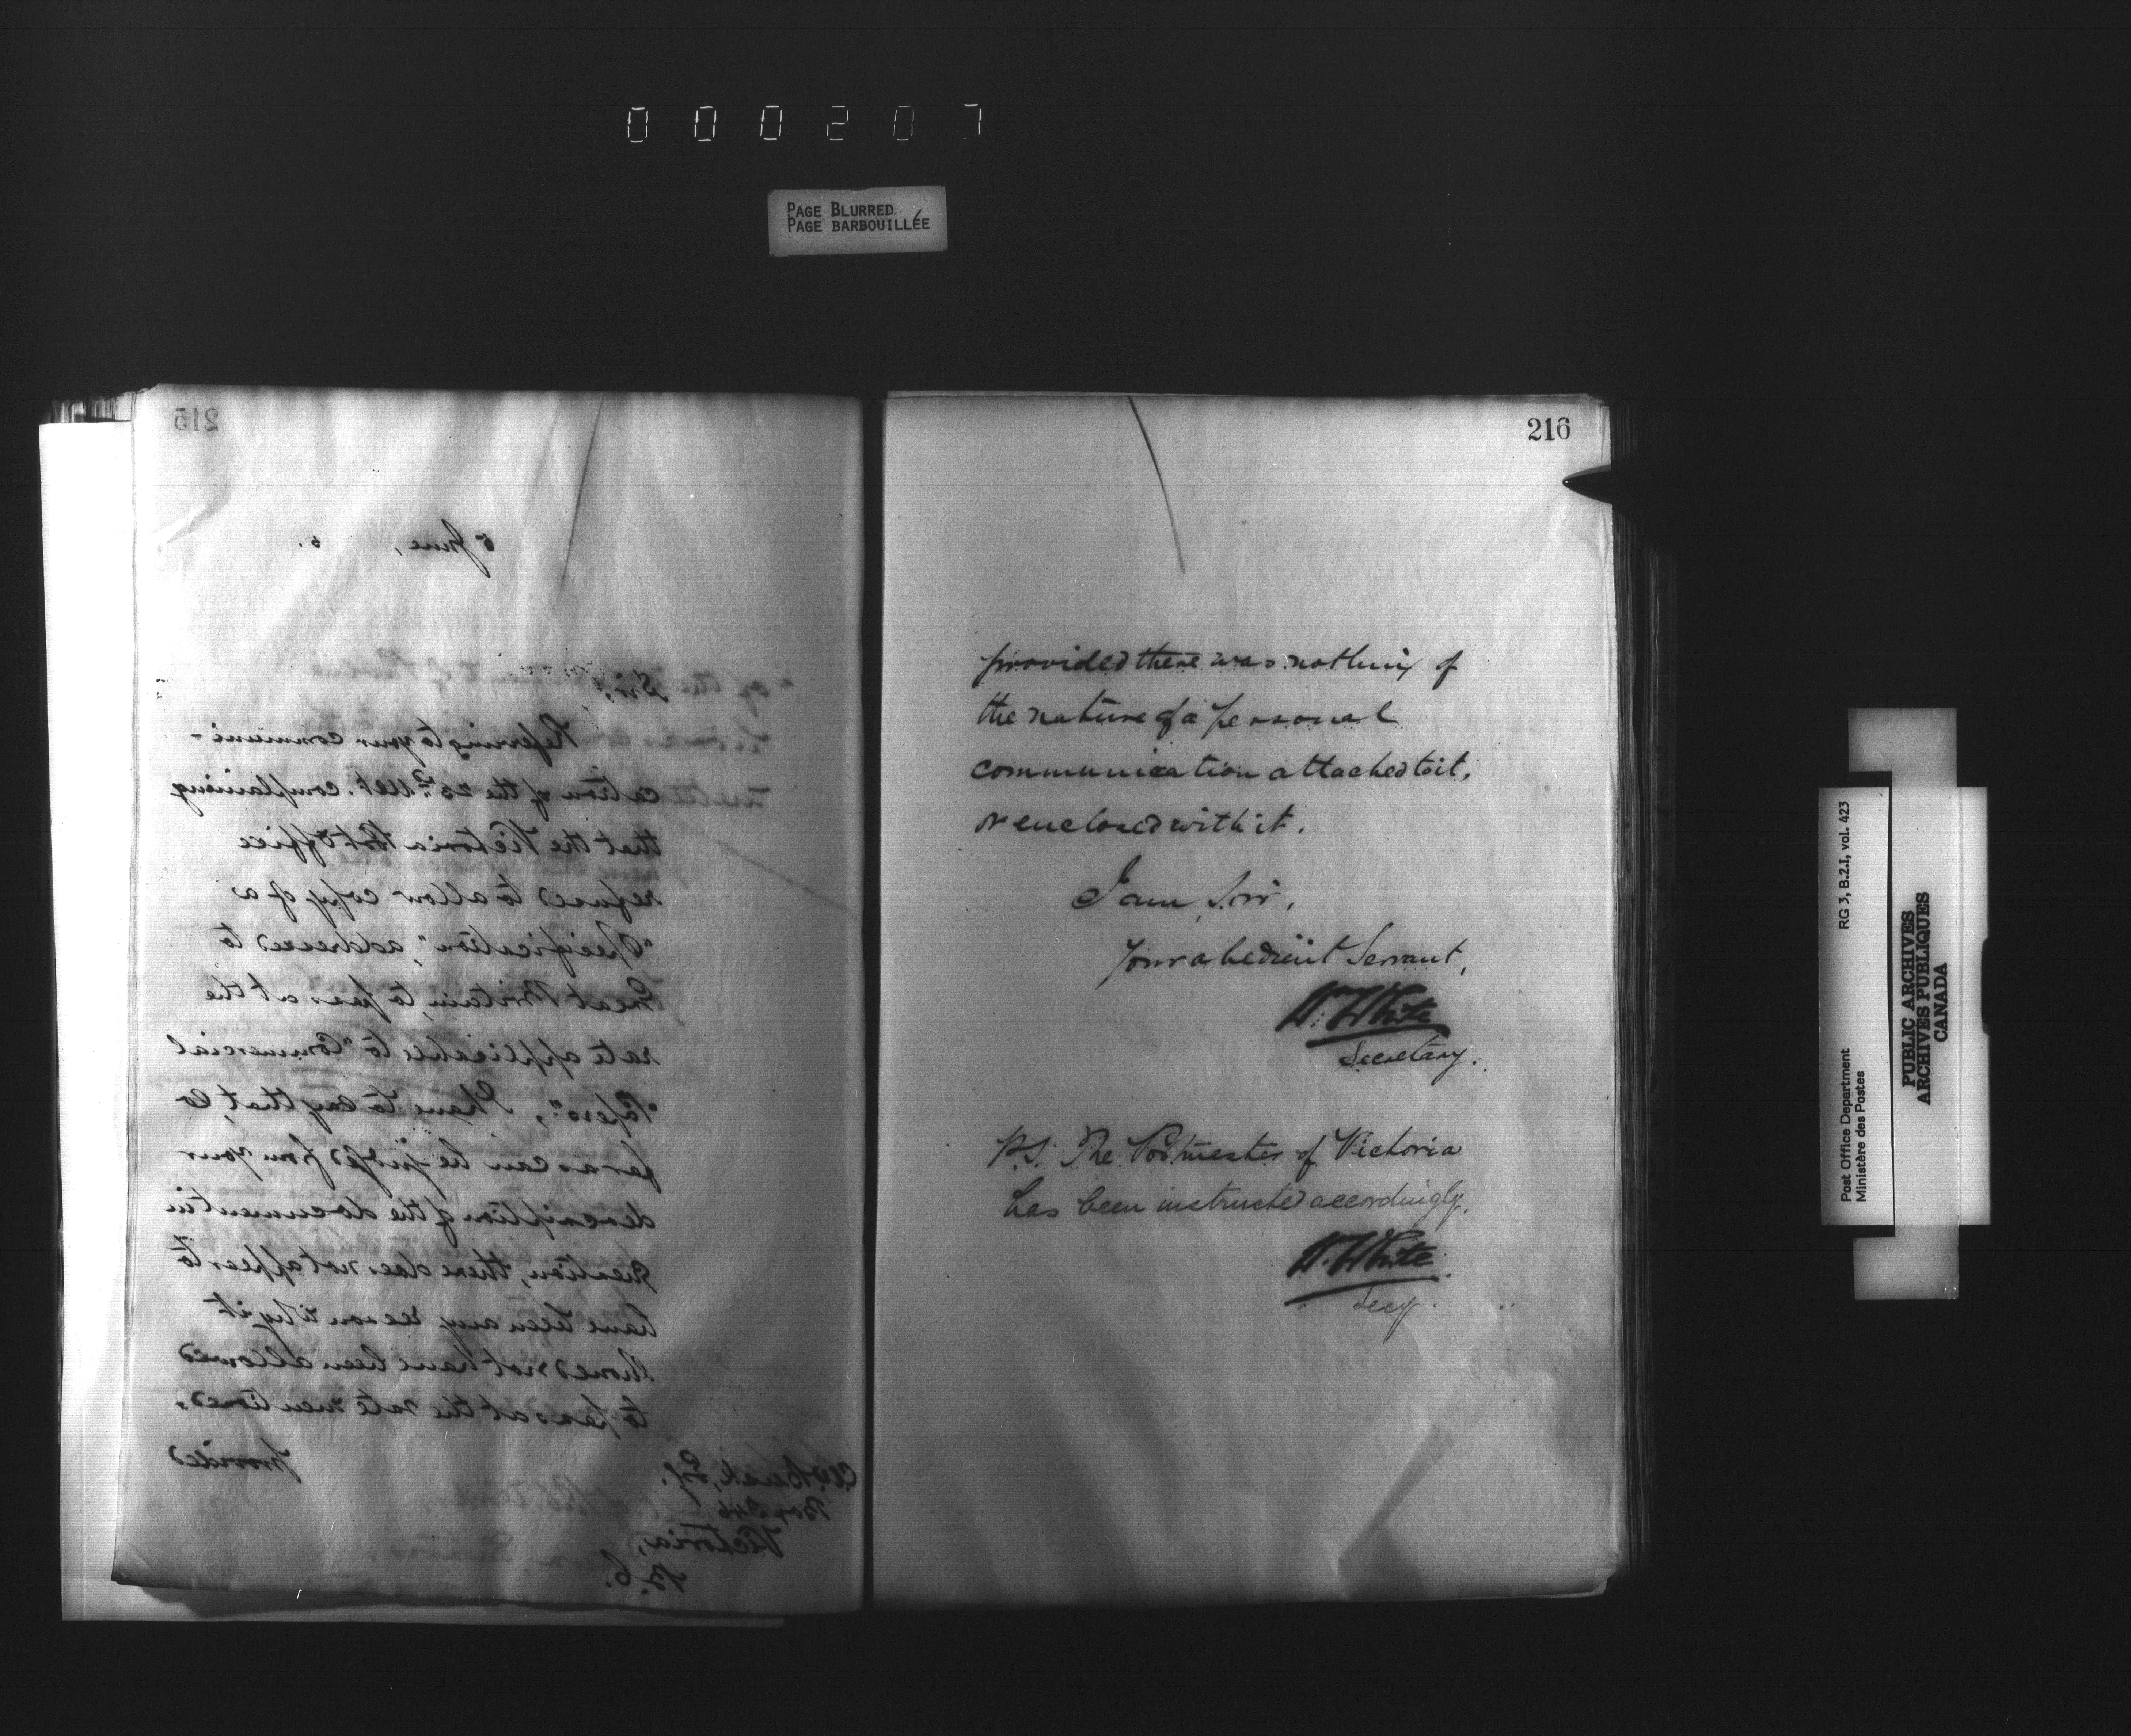 000207
PAGE BLURRED
PAGE BARBOUILLÉE
215
5 June, 5.
Sir,
Referring to your communi-
cation of the 25th Ult. complaining
that the Victoria Post Office
refused to allow copy of a
"Specification", addressed to
Great Britain, to pass at the
rate applicable to "Commercial
"Papers", I have to say that, so
far as can be judged from your
description of the document in
question, there does not appear to
have been any reason why it
should not have been allowed
to pass at the rate mentioned,
provided
Esq.
Box
Victoria,
B.C.
216
provided there was nothing of
the nature of a personal
communication attached to it,
or enclosed with it.
I am, Sir,
Your obedient Servant,
W. White
Secretary.
P.S. The Postmaster of Victoria
has been instructed accordingly.
W. White
Secy.
Post Office Department
Ministère des Postes
RG 3, B.2.I, vol. 423
PUBLIC ARCHIVES
ARCHIVES PUBLIQUES
CANADA